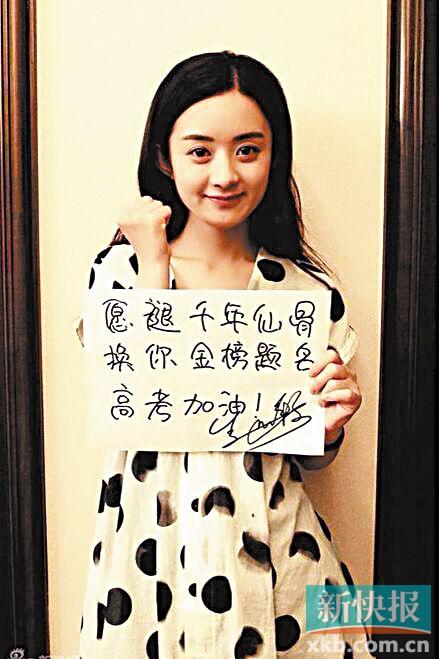 愿褪千年仙骨
换你金榜题名
高考加油!
新快报
xkb.com.cn